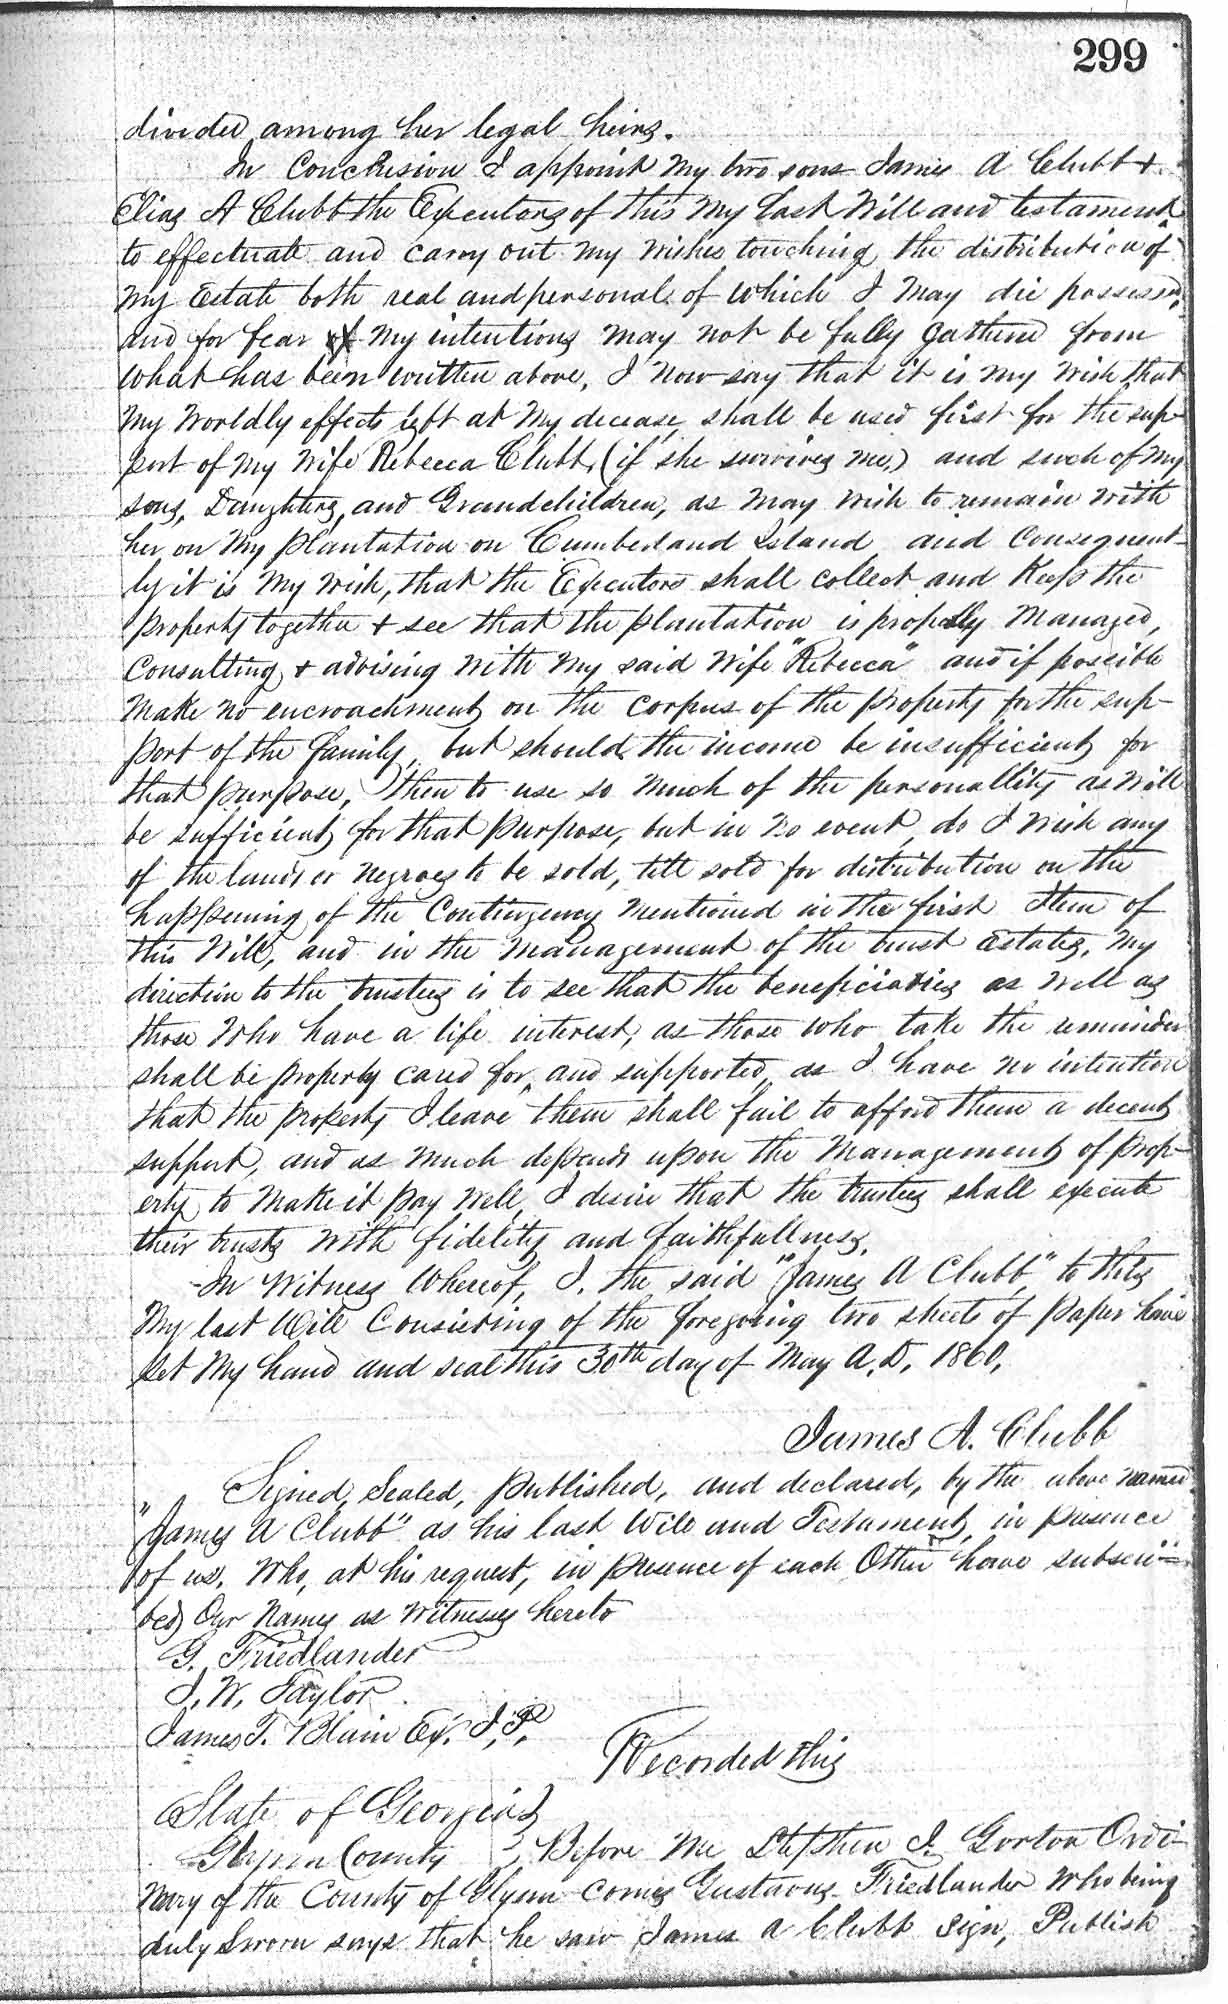 299
divided among her legal heirs.
In Conclusion I appoint my two sons James A Clubb +
Elias A Clubb the Executors of this my last Will and testament
to effectuate and carry out my wishes touching the distribution of
my Estate both real and personal of which I may die possessed,
and for fear my intentions may not be fully gathered from
what has been written above, I now say that it is my wish that
my worldly effects left at my decease shall be used first for the sup-
port of my wife Rebecca Clubb, (if she survives me,) and such of my
sons, Daughters, and Grandchildren, as may wish to remain with
her on my plantation on Cumberland Island and Consequent-
ly it is my wish, that the Executors shall collect and Keep the
property together + see that the plantation is properly managed,
Consulting + advising with my said wife "Rebecca" and if possible
make no encroachment on the corpus of the property for the sup-
port of the family, but should the income be insufficient for
that purpose, then to use so much of the personallity as will
be sufficient for that purpose, but in no event do I wish any
of the lands or negroes to be sold, till sold for distribution on the
happening of the Contingency mentioned in the first Item of
this Will, and in the management of the trust estates, my
direction to the trustees is to see that the beneficiaries as well as
those who have a life interest, as those who take the remainder
shall be properly cared for, and supported, as I have no intention
that the property I leave them shall fail to afford them a decent
support, and as much depends upon the management of prop-
erty to make it pay well, I desire that the trustees shall execute
their trusts with fidelity and faithfullness.
In Witness Whereof, I, the said "James A Clubb" to this
my last Will Consisting of the foregoing two sheets of paper have
set my hand and seal this 30th day of May A.D. 1860.
James A. Clubb
Signed, Sealed, published, and declared, by the above named
"James A Clubb" as his last Will and Testament, in presence
of us. Who, at his request, in presence of each Other have subscri=
bed Our names as witnesses hereto
G. Friedlander
J. W. Taylor
James T. Blain Ex. J. P.
Recorded this
State of Georgia
Glynn County } Before me Stephen J. Gorton Ordi-
nary of the County of Glynn comes Gustavus Friedlander who being
duly Sworn says that he saw James A Clubb Sign, Publish